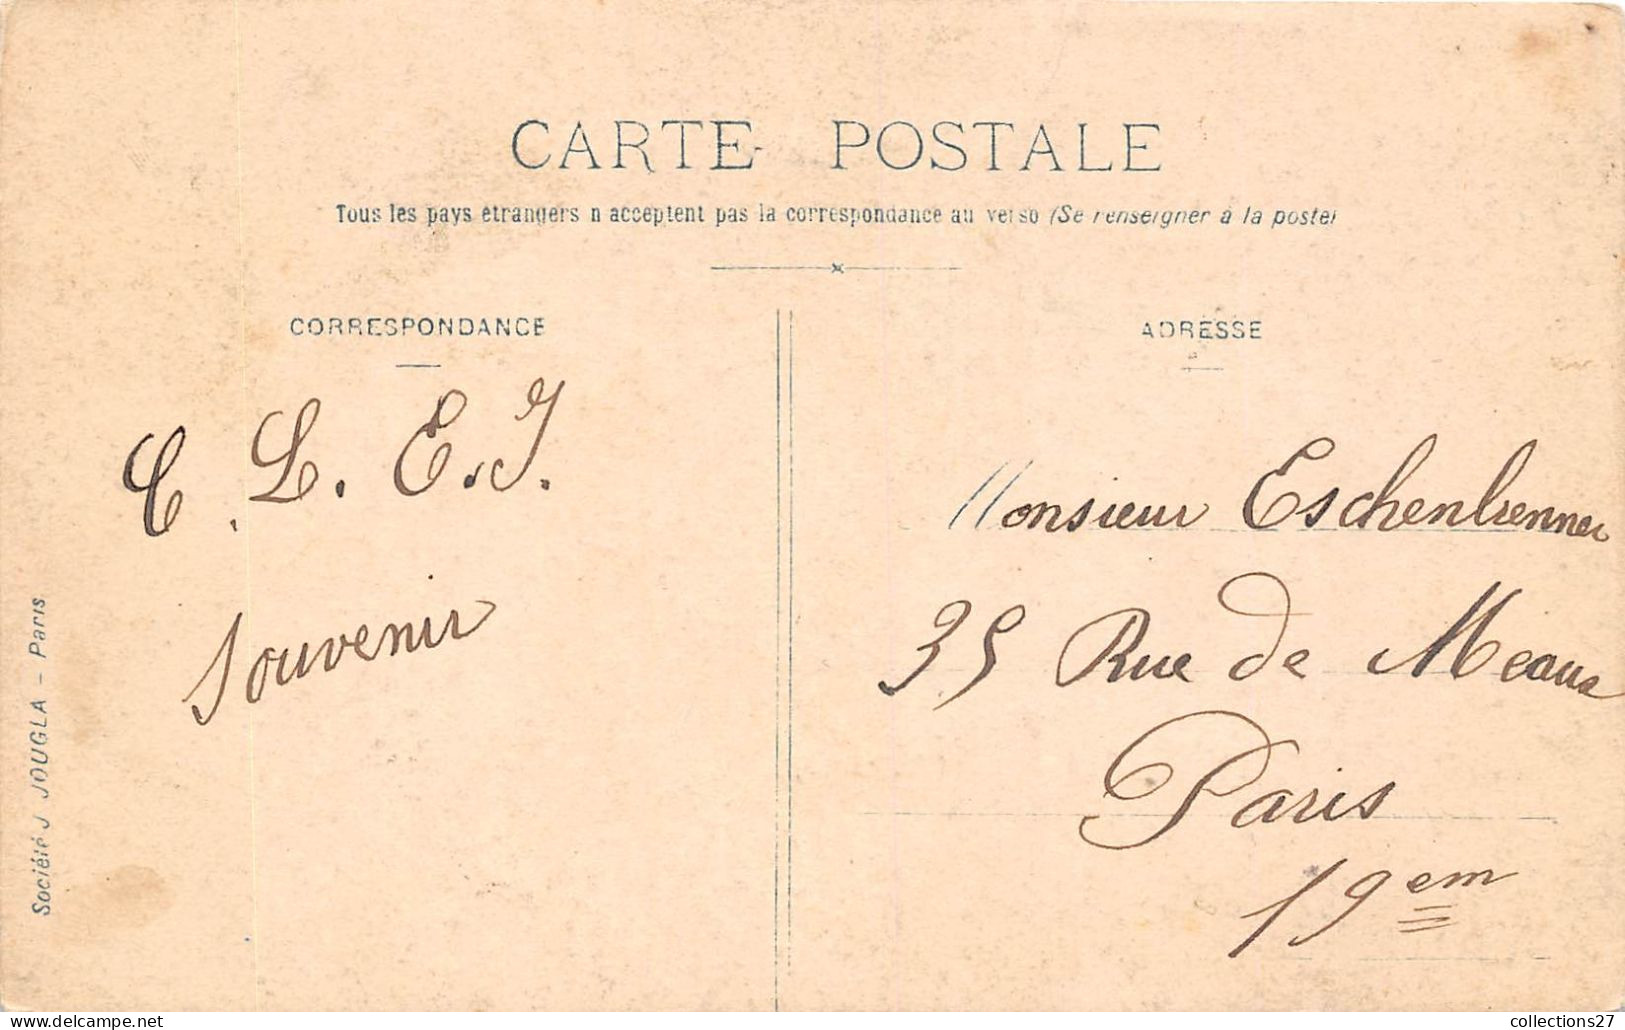 CARTE POSTALE
Tous les pays étrangers n'acceptent pas la correspondance au verso (Se renseigner à la poste)
CORRESPONDANCE
C. L. E. J.
Souvenir
Société J JOUGLA - Paris
ADRESSE
Monsieur Eschenbrenner
35 Rue de Meaux
Paris
19em
collections27